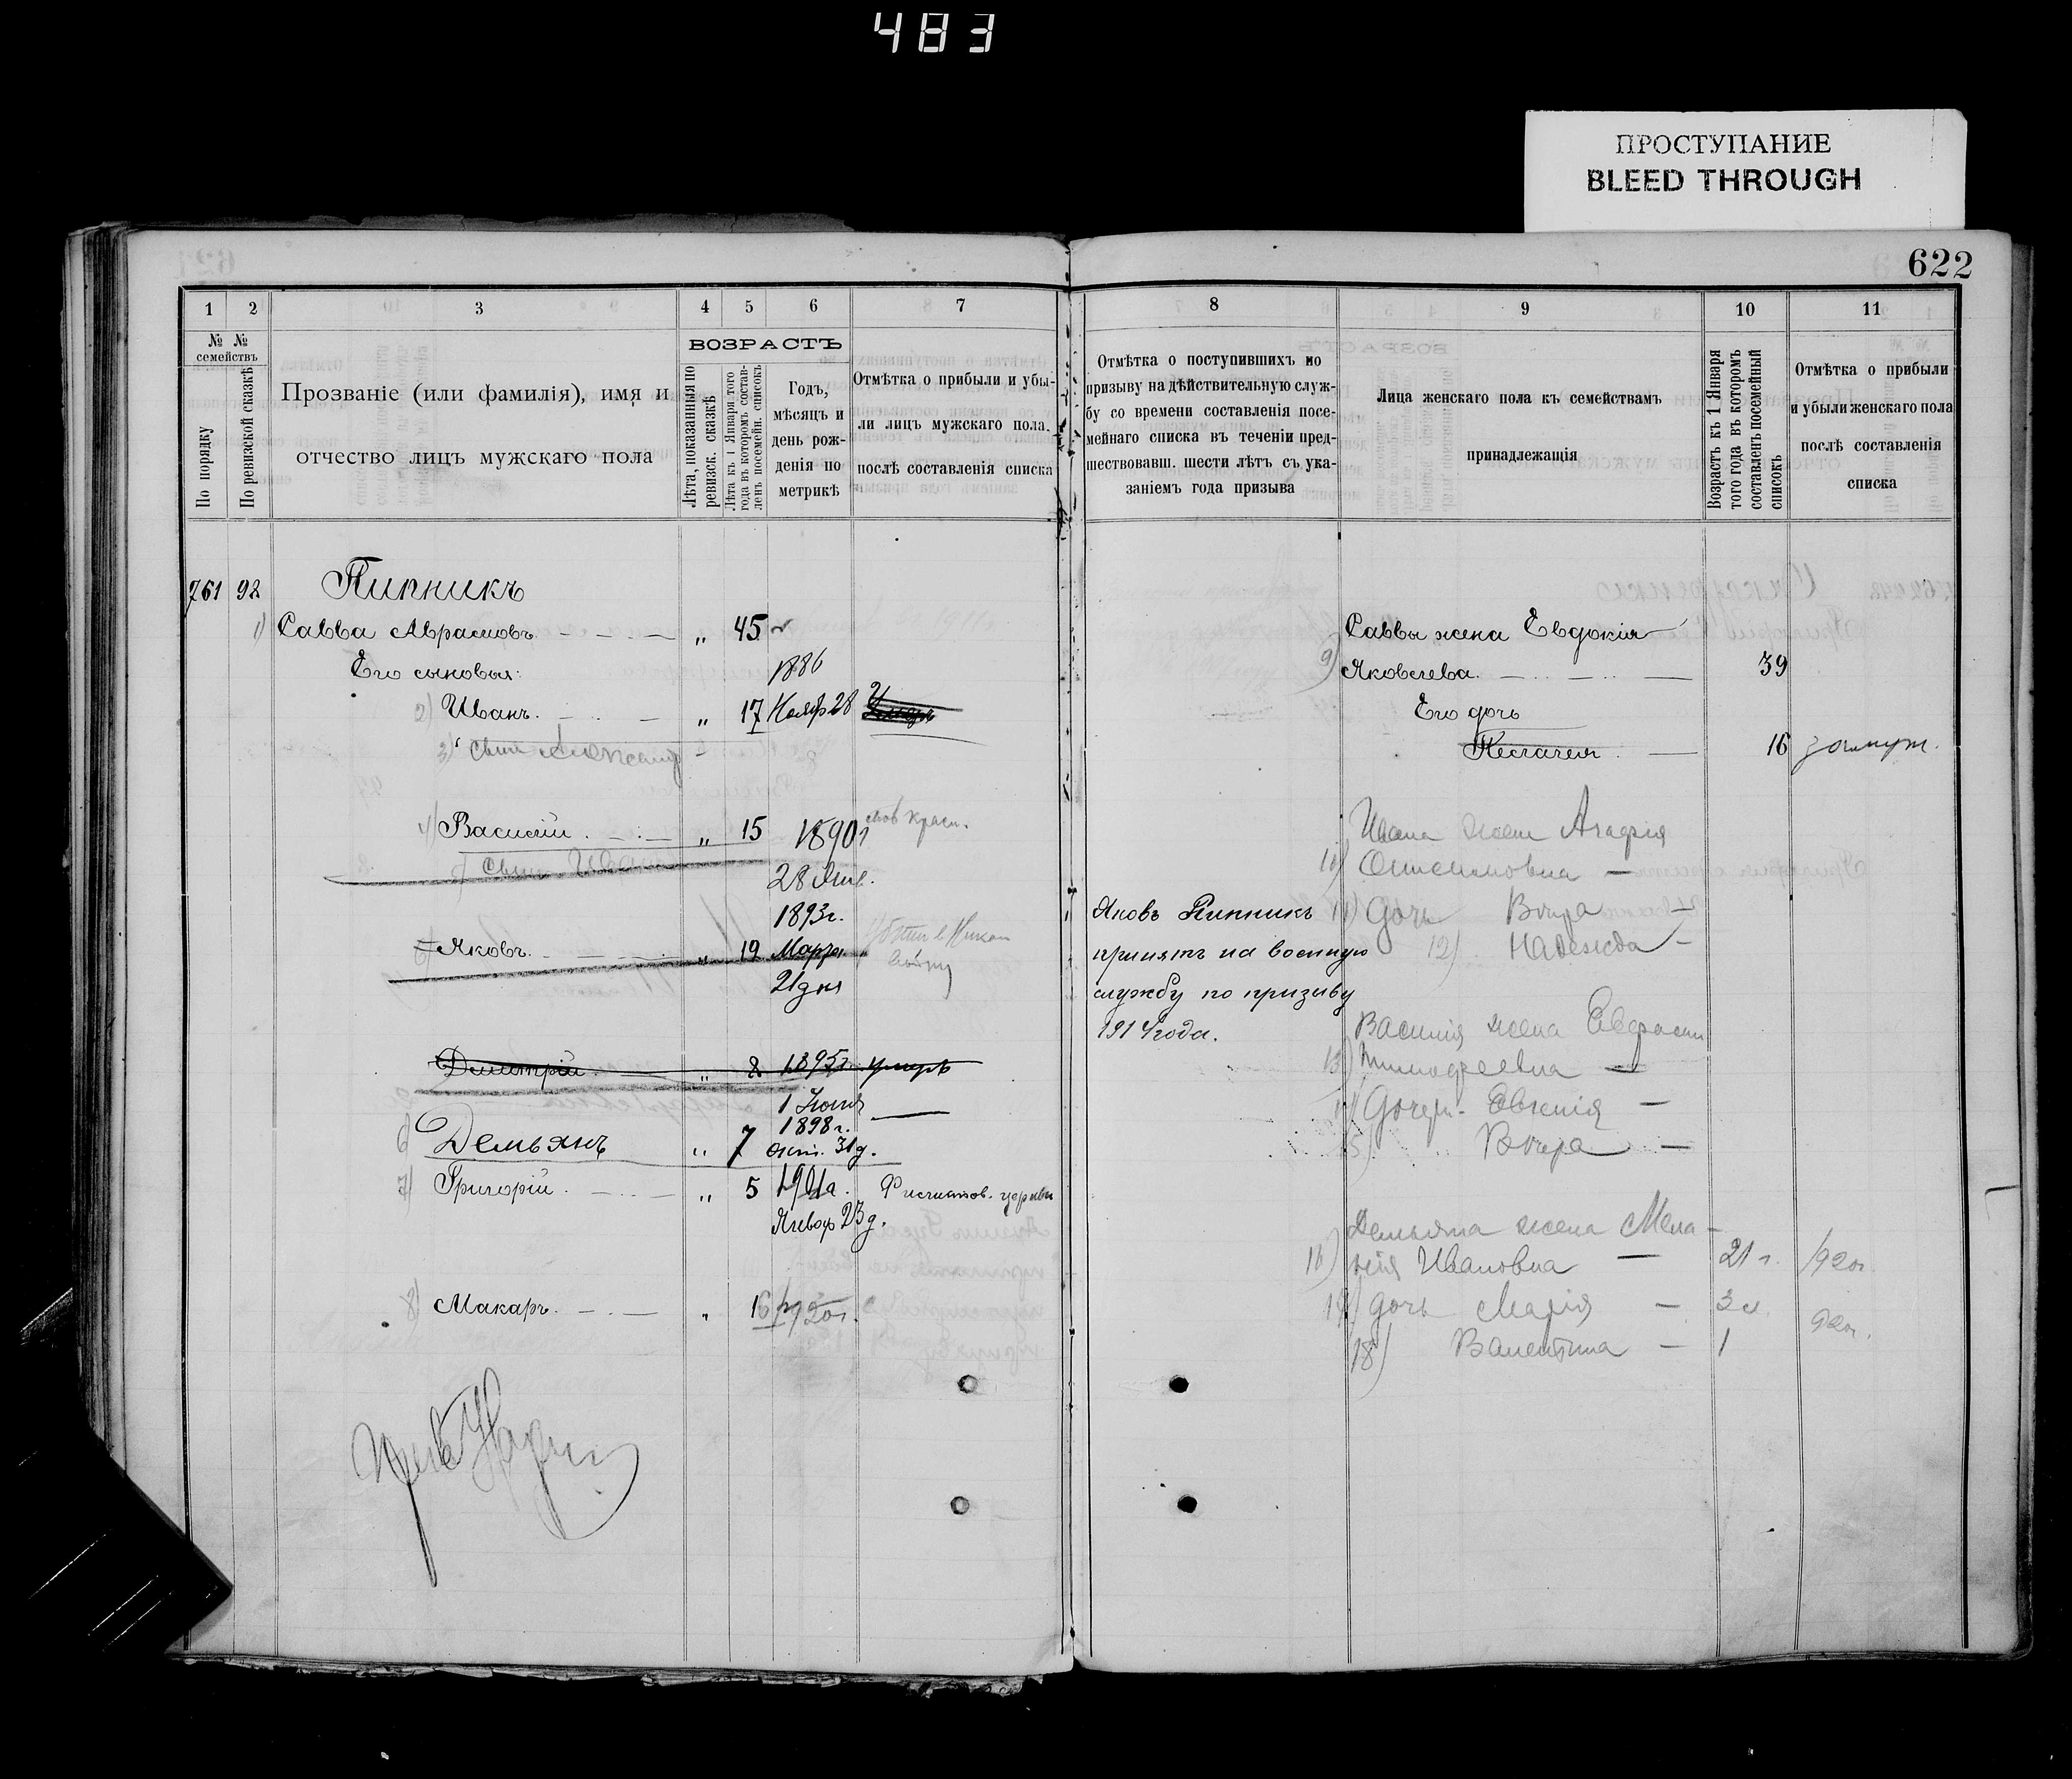 483
ПРОСТУПАНИЕ
BLEED THROUGH
622
1 2 3 4 5 6 7
№ № семействъ
По порядку
По ревизской сказкѣ
Прозваніе (или фамилія), имя и
отчество лицъ мужскаго пола
ВОЗРАСТЪ
Лѣта, показанныя по
ревизск. сказкѣ
Лѣта къ 1 Января того
года въ которомъ состав-
ленъ посемейн. списокъ
Годъ,
мѣсяцъ и
день рож-
денія по
метрикѣ
Отмѣтка о прибыли и убы-
ли лицъ мужскаго пола.
послѣ составленія списка
761 92 Пипникъ
1) Савва Аврамовъ „ 45
Его сыновья: 1886
2) Иванъ. „ 17 Нояб 28
3) Сынъ Александ
4) Василій „ 15 1890
сынъ Иван
28 Янв.
1893г.
Яковъ. „ 12 Марта
21 дня
Димитрій „ 8 1895г. умеръ
1 Іюня
1898г.
6) Демьянъ „ 7 Окт. 31д.
7) Григорій „ 5 1901г. церкви
Январ 23д.
8) Макаръ. „ 16 1920г.
8 9 10 11
Отмѣтка о поступившихъ по
призыву на дѣйствительную служ-
бу со времени составленія посе-
мейнаго списка въ теченіи пред-
шествовавш. шести лѣтъ съ ука-
заніемъ года призыва
Лица женскаго пола къ семействамъ
принадлежащія
Возрастъ къ 1 Января
того года въ которомъ
составленъ посемейный
списокъ
Отмѣтка о прибыли
и убыли женскаго пола
послѣ составленія
списка
Саввы жена Евдокія
9) Яковлева. 39
Его дочь
16 замуж.
Ивана жена Агафія
10) Онисимовна
Яковъ Пипникъ
принятъ на военную
службу по призыву
1914 года.
11) Дочь Вѣра
12) Надежда
Василія жена
13) Тимофеевна
Дочери Евгенія
15) Вѣра
Демьяна жена Мела-
16) нія Ивановна 21 г. 1920г
17) дочь Марія 3 920г.
18) Валентина 1